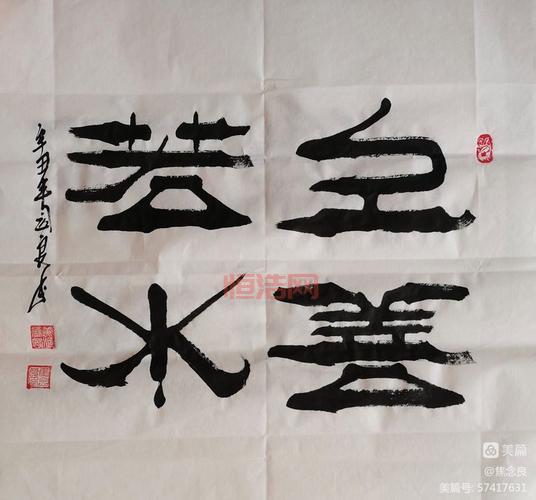 上善
若水
辛丑年良书
恒浩网
美篇
@焦念良
美篇号: 57417631